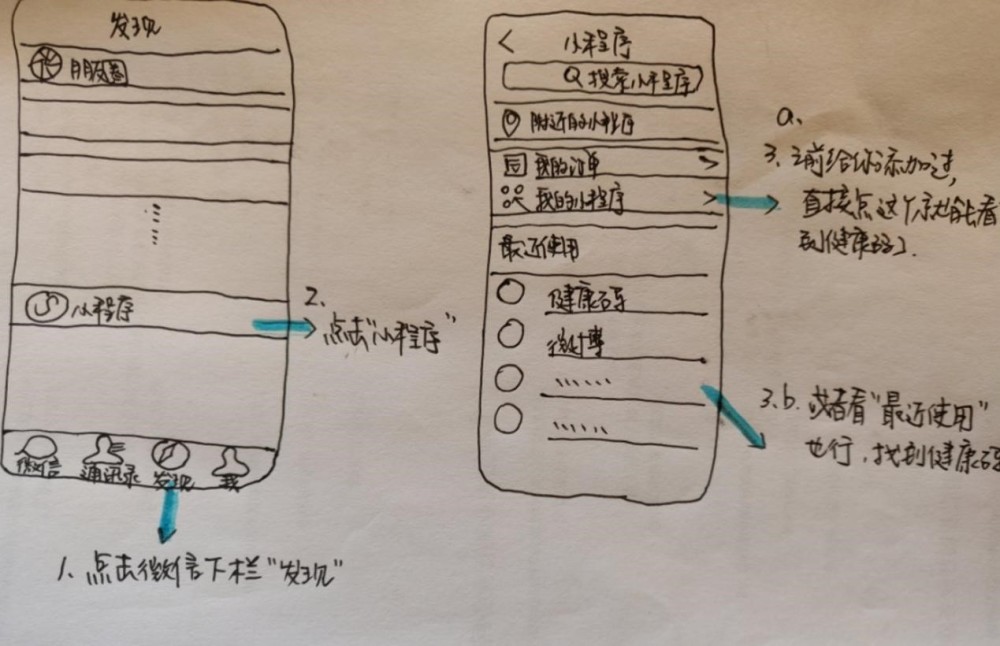 发现
朋友圈
小程序
微信 通讯录 发现 我
2.
点击“小程序”
1. 点击微信下栏“发现”
小程序
搜索小程序
附近的小程序
我的订单
我的小程序
最近使用
健康码
微博
a.
3. 之前给你添加过,
直接点这个就能看
到健康码.
3.b. 或者看“最近使用”
也行,找到健康码